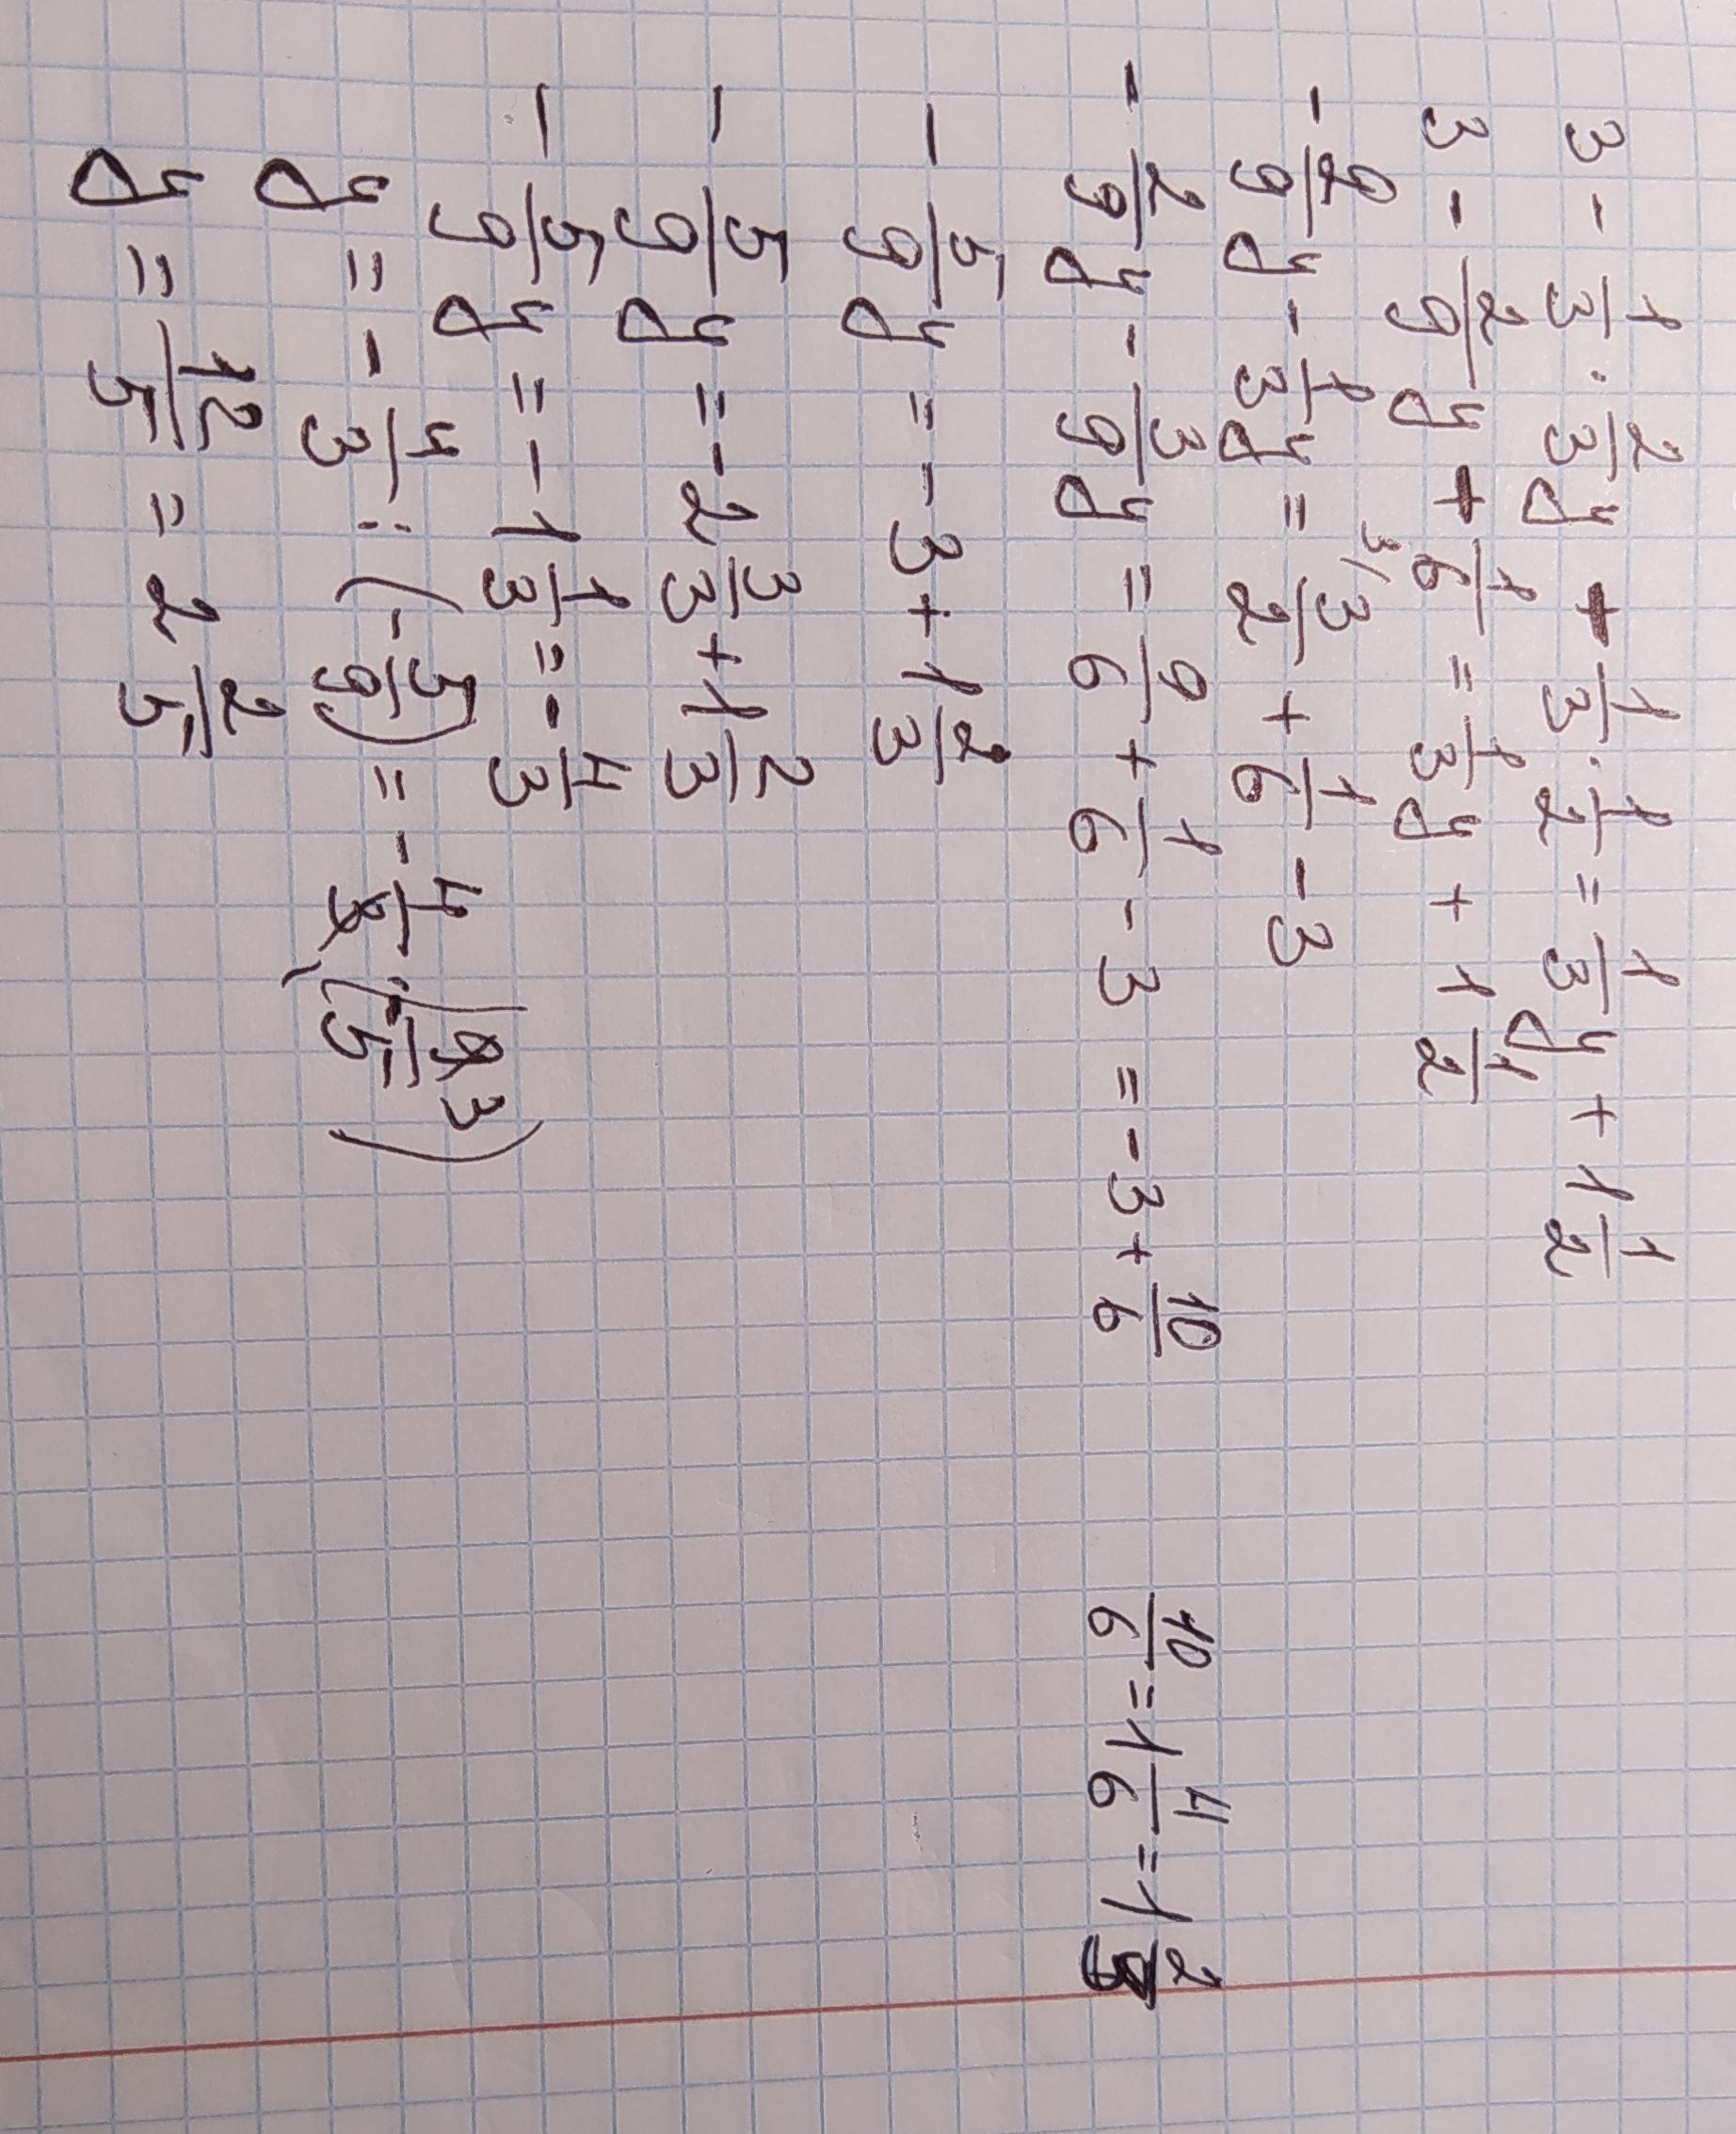 3 - 1/3 · 2/3 y + 1/3 · 1/2 = 1/3 y + 1 1/2
3 - 2/9 y + 1/6 = 1/3 y + 1 1/2
- 2/9 y - 1/3 y = 3/ 3/2 + 1/6 - 3
- 2/9 y - 3/9 y = 9/6 + 1/6 - 3 = -3 + 10/6 10/6 = 1 4/6 = 1 2/3
- 5/9 y = -3 + 1 2/3
- 5/9 y = -2 3/3 + 1 2/3
- 5/9 y = -1 1/3 = - 4/3
y = - 4/3 : (- 5/9) = - 4/3 · (- 9/5) 3
y = 12/5 = 2 2/5